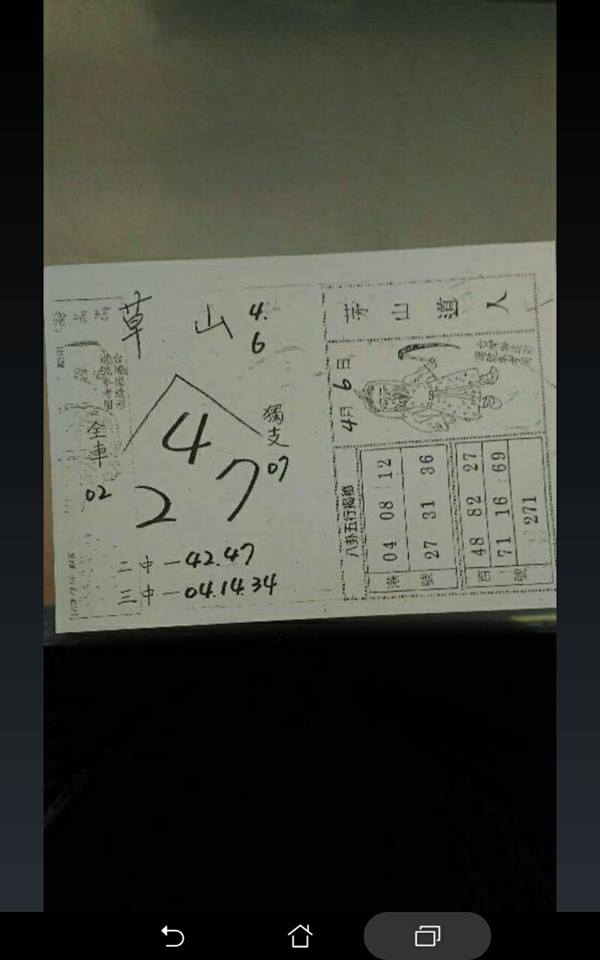 草山 4.
6
4
2 7
全車
02
獨支
07
二中－42.47
三中－04.14.34
茅山道人
4月6日
八卦五行揭鄉
港號
04 08 12
27 31 36
百號
48 82 27
71 16 69
271